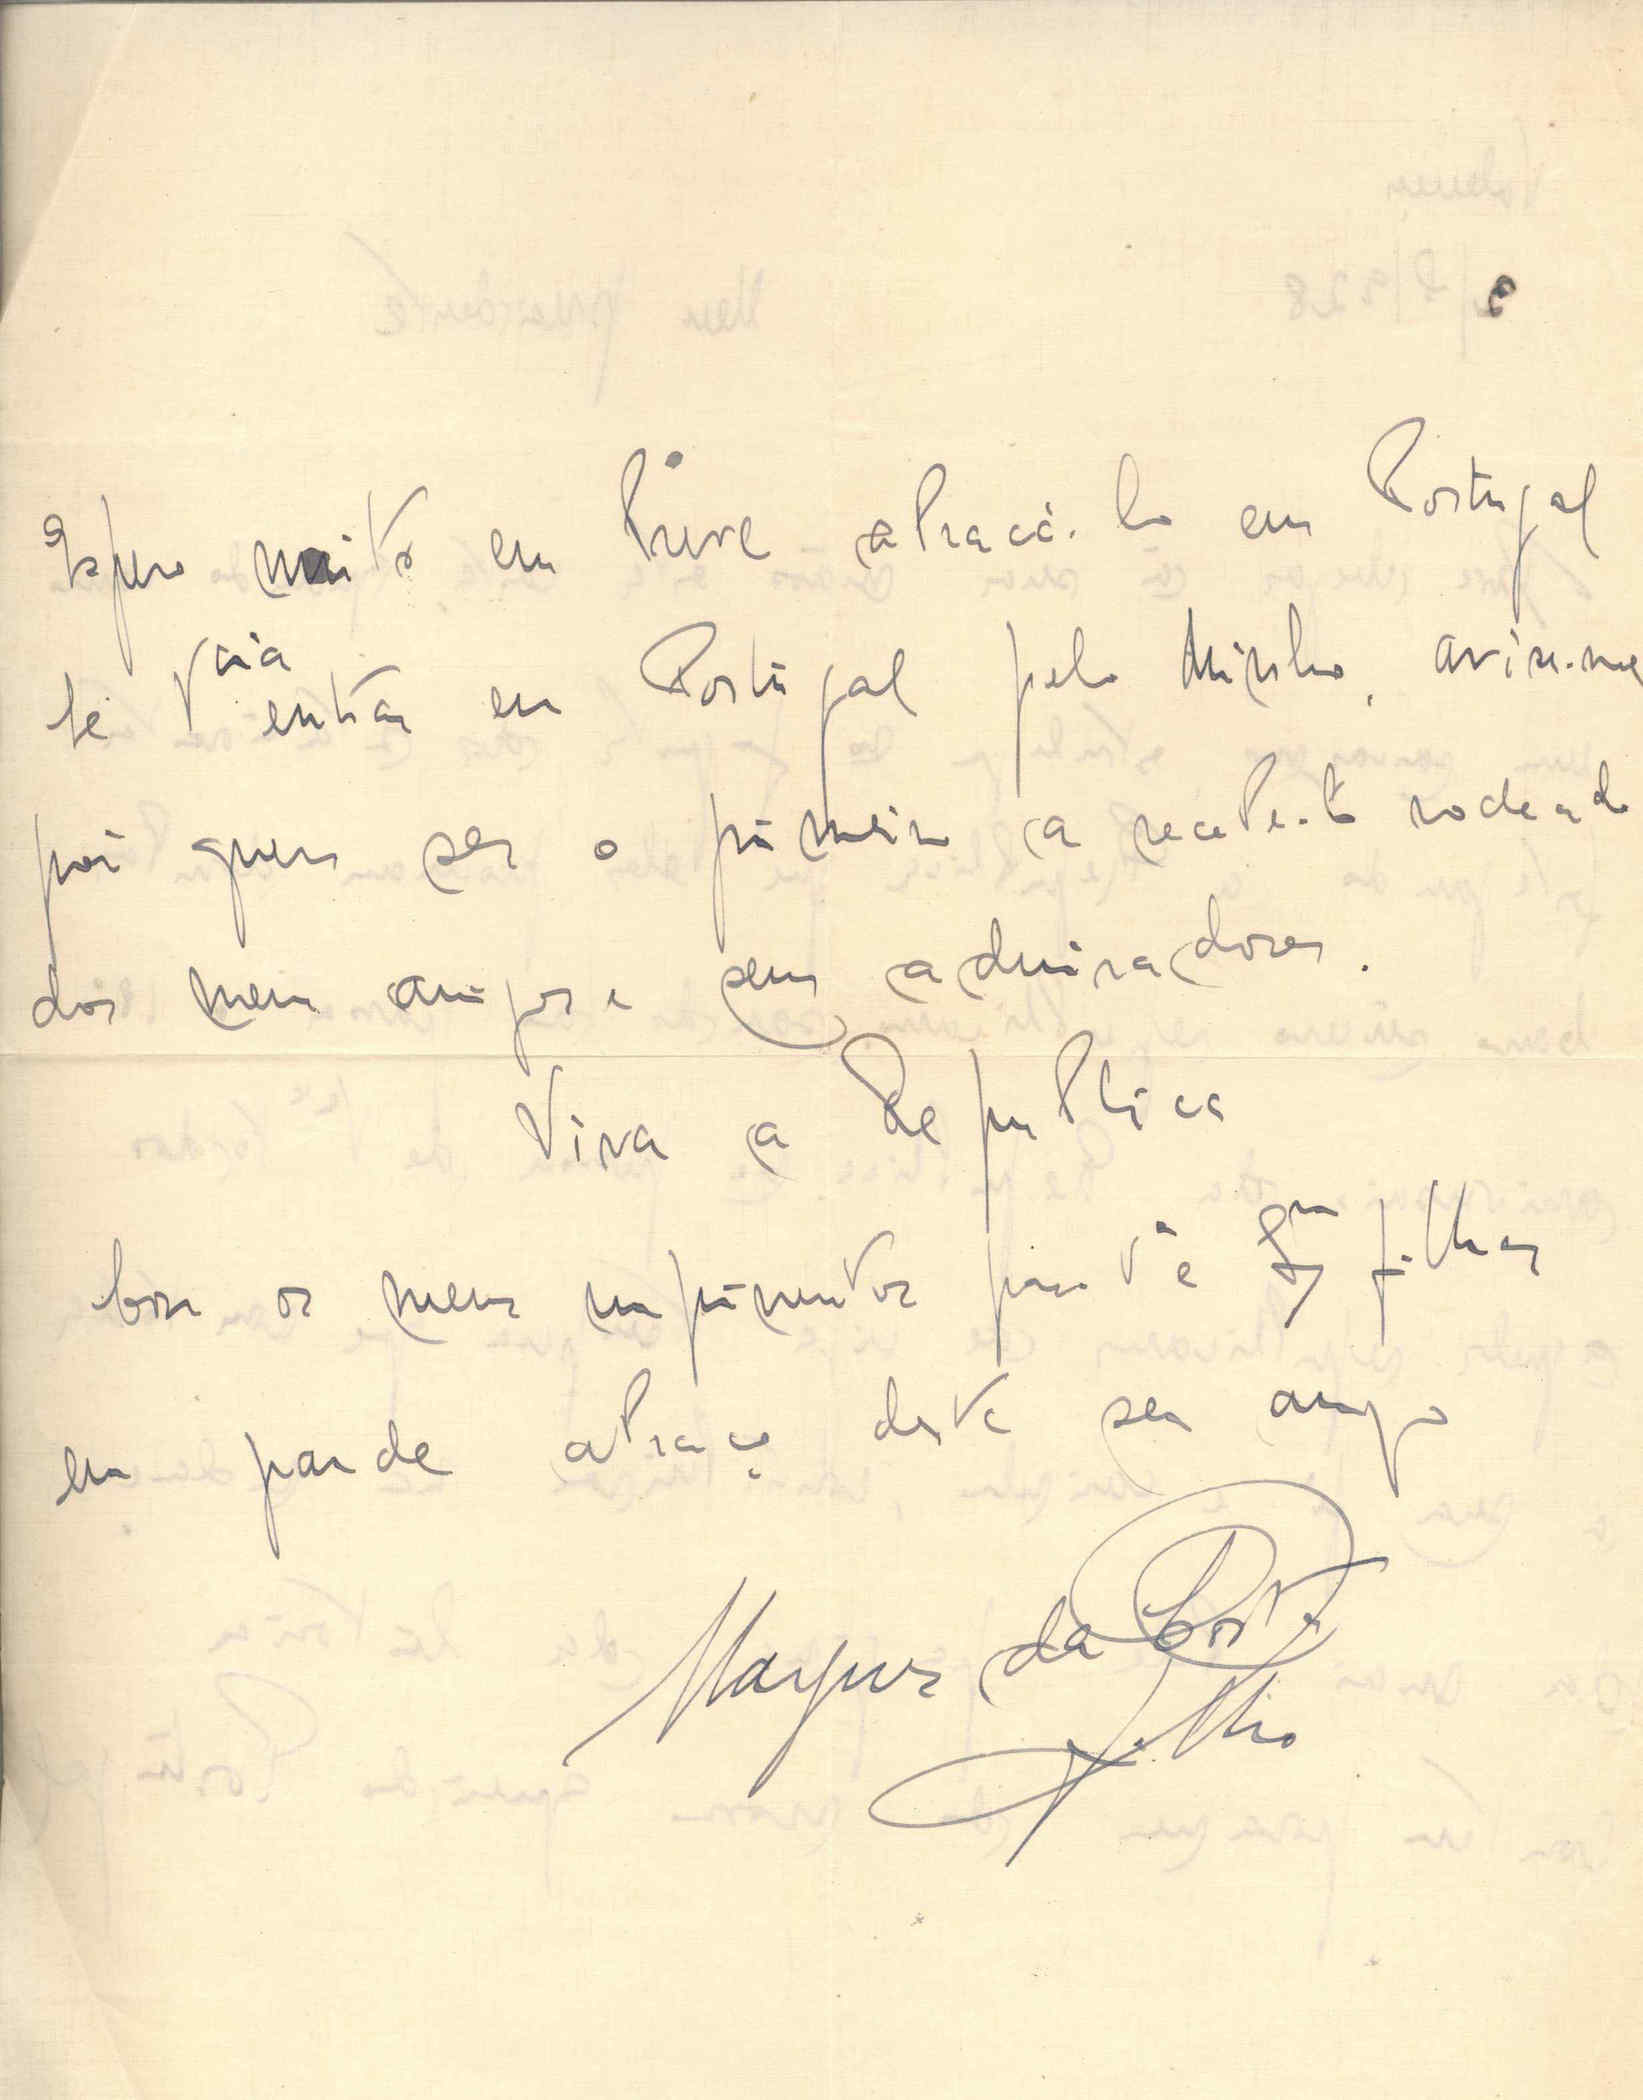 Espero muito em breve abraçá-lo em Portugal
se vaia entrar em Portugal pelo Minho, avise-me
pois quero ser o primeiro a recebe-lo rodeado
dos meus amigos e seus admiradores.
Viva a Republica
Com os meus cumprimentos para filhas
um grande abraço deste seu amigo
Marques da Costa
Filho